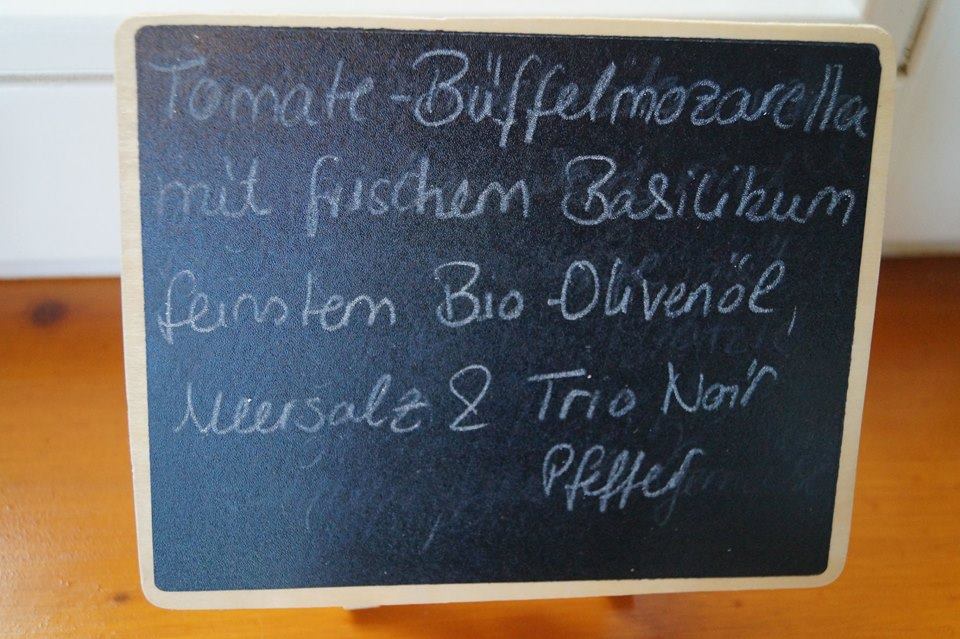 Tomate-Büffelmozarella
mit frischem Basilikum
feinstem Bio-Olivenöl,
Meersalz & Trio Noir
Pfeffer